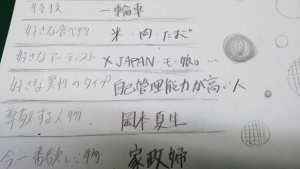 特技 一輪車
好きな食べ物 米・肉・たまご
好きなアーティスト X JAPAN モー娘。…
好きな異性のタイプ 自己管理能力が高い人
尊敬する人物 岡本夏生
今一番欲しい物 家政婦